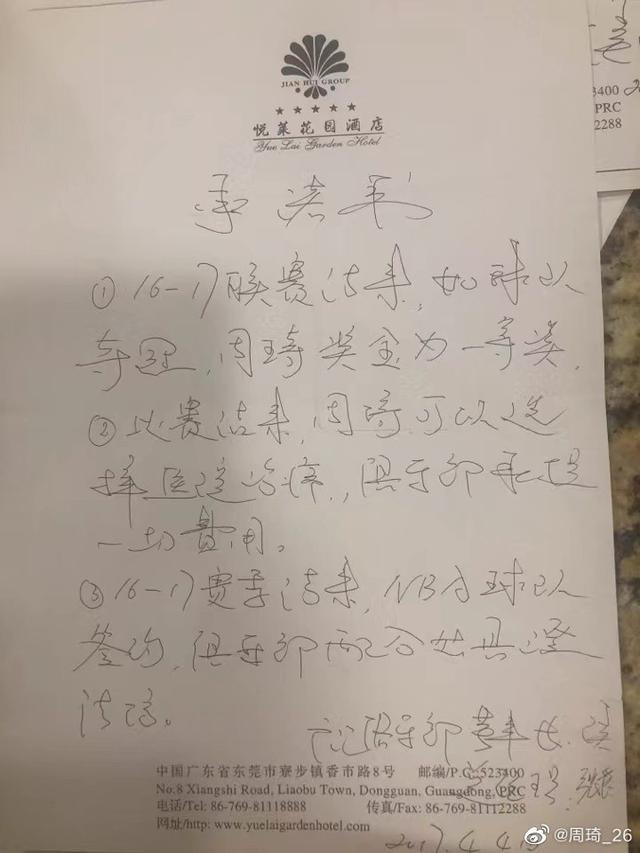 JIAN HUI GROUP
★★★★★
悦莱花园酒店
Yue Lai Garden Hotel
3400
PRC
2288
承诺书
①16-17联赛结束,如球队
夺冠,周琦奖金为一等奖,
②比赛结束,周琦可以选
择医院治疗,俱乐部承担
一切费用。
③16-17赛季结束,NBA球队
签约,俱乐部配合出具澄
清信。
俱乐部董事长
中国广东省东莞市寮步镇香市路8号 邮编/P.C:523400
No.8 Xiangshi Road, Liaobu Town, Dongguan, Guangdong, PRC
电话/Tel: 86-769-81118888 传真/Fax: 86-769-81112288
网址/http: www.yuelaigardenhotel.com
2017.4.4
@周琦_26